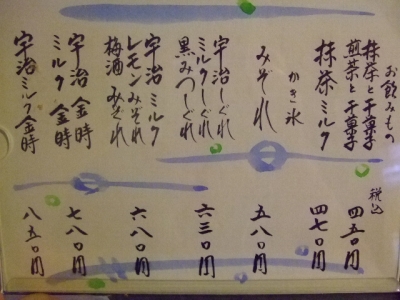 お飲みもの 税込
抹茶と干菓子
煎茶と干菓子 四五〇円
抹茶ミルク 四七〇円
かき氷
みぞれ 五八〇円
宇治しぐれ
ミルクしぐれ
黒みつしぐれ 六三〇円
宇治ミルク
レモンみぞれ
梅酒みぞれ 六八〇円
宇治金時
ミルク金時 七八〇円
宇治ミルク金時 八五〇円